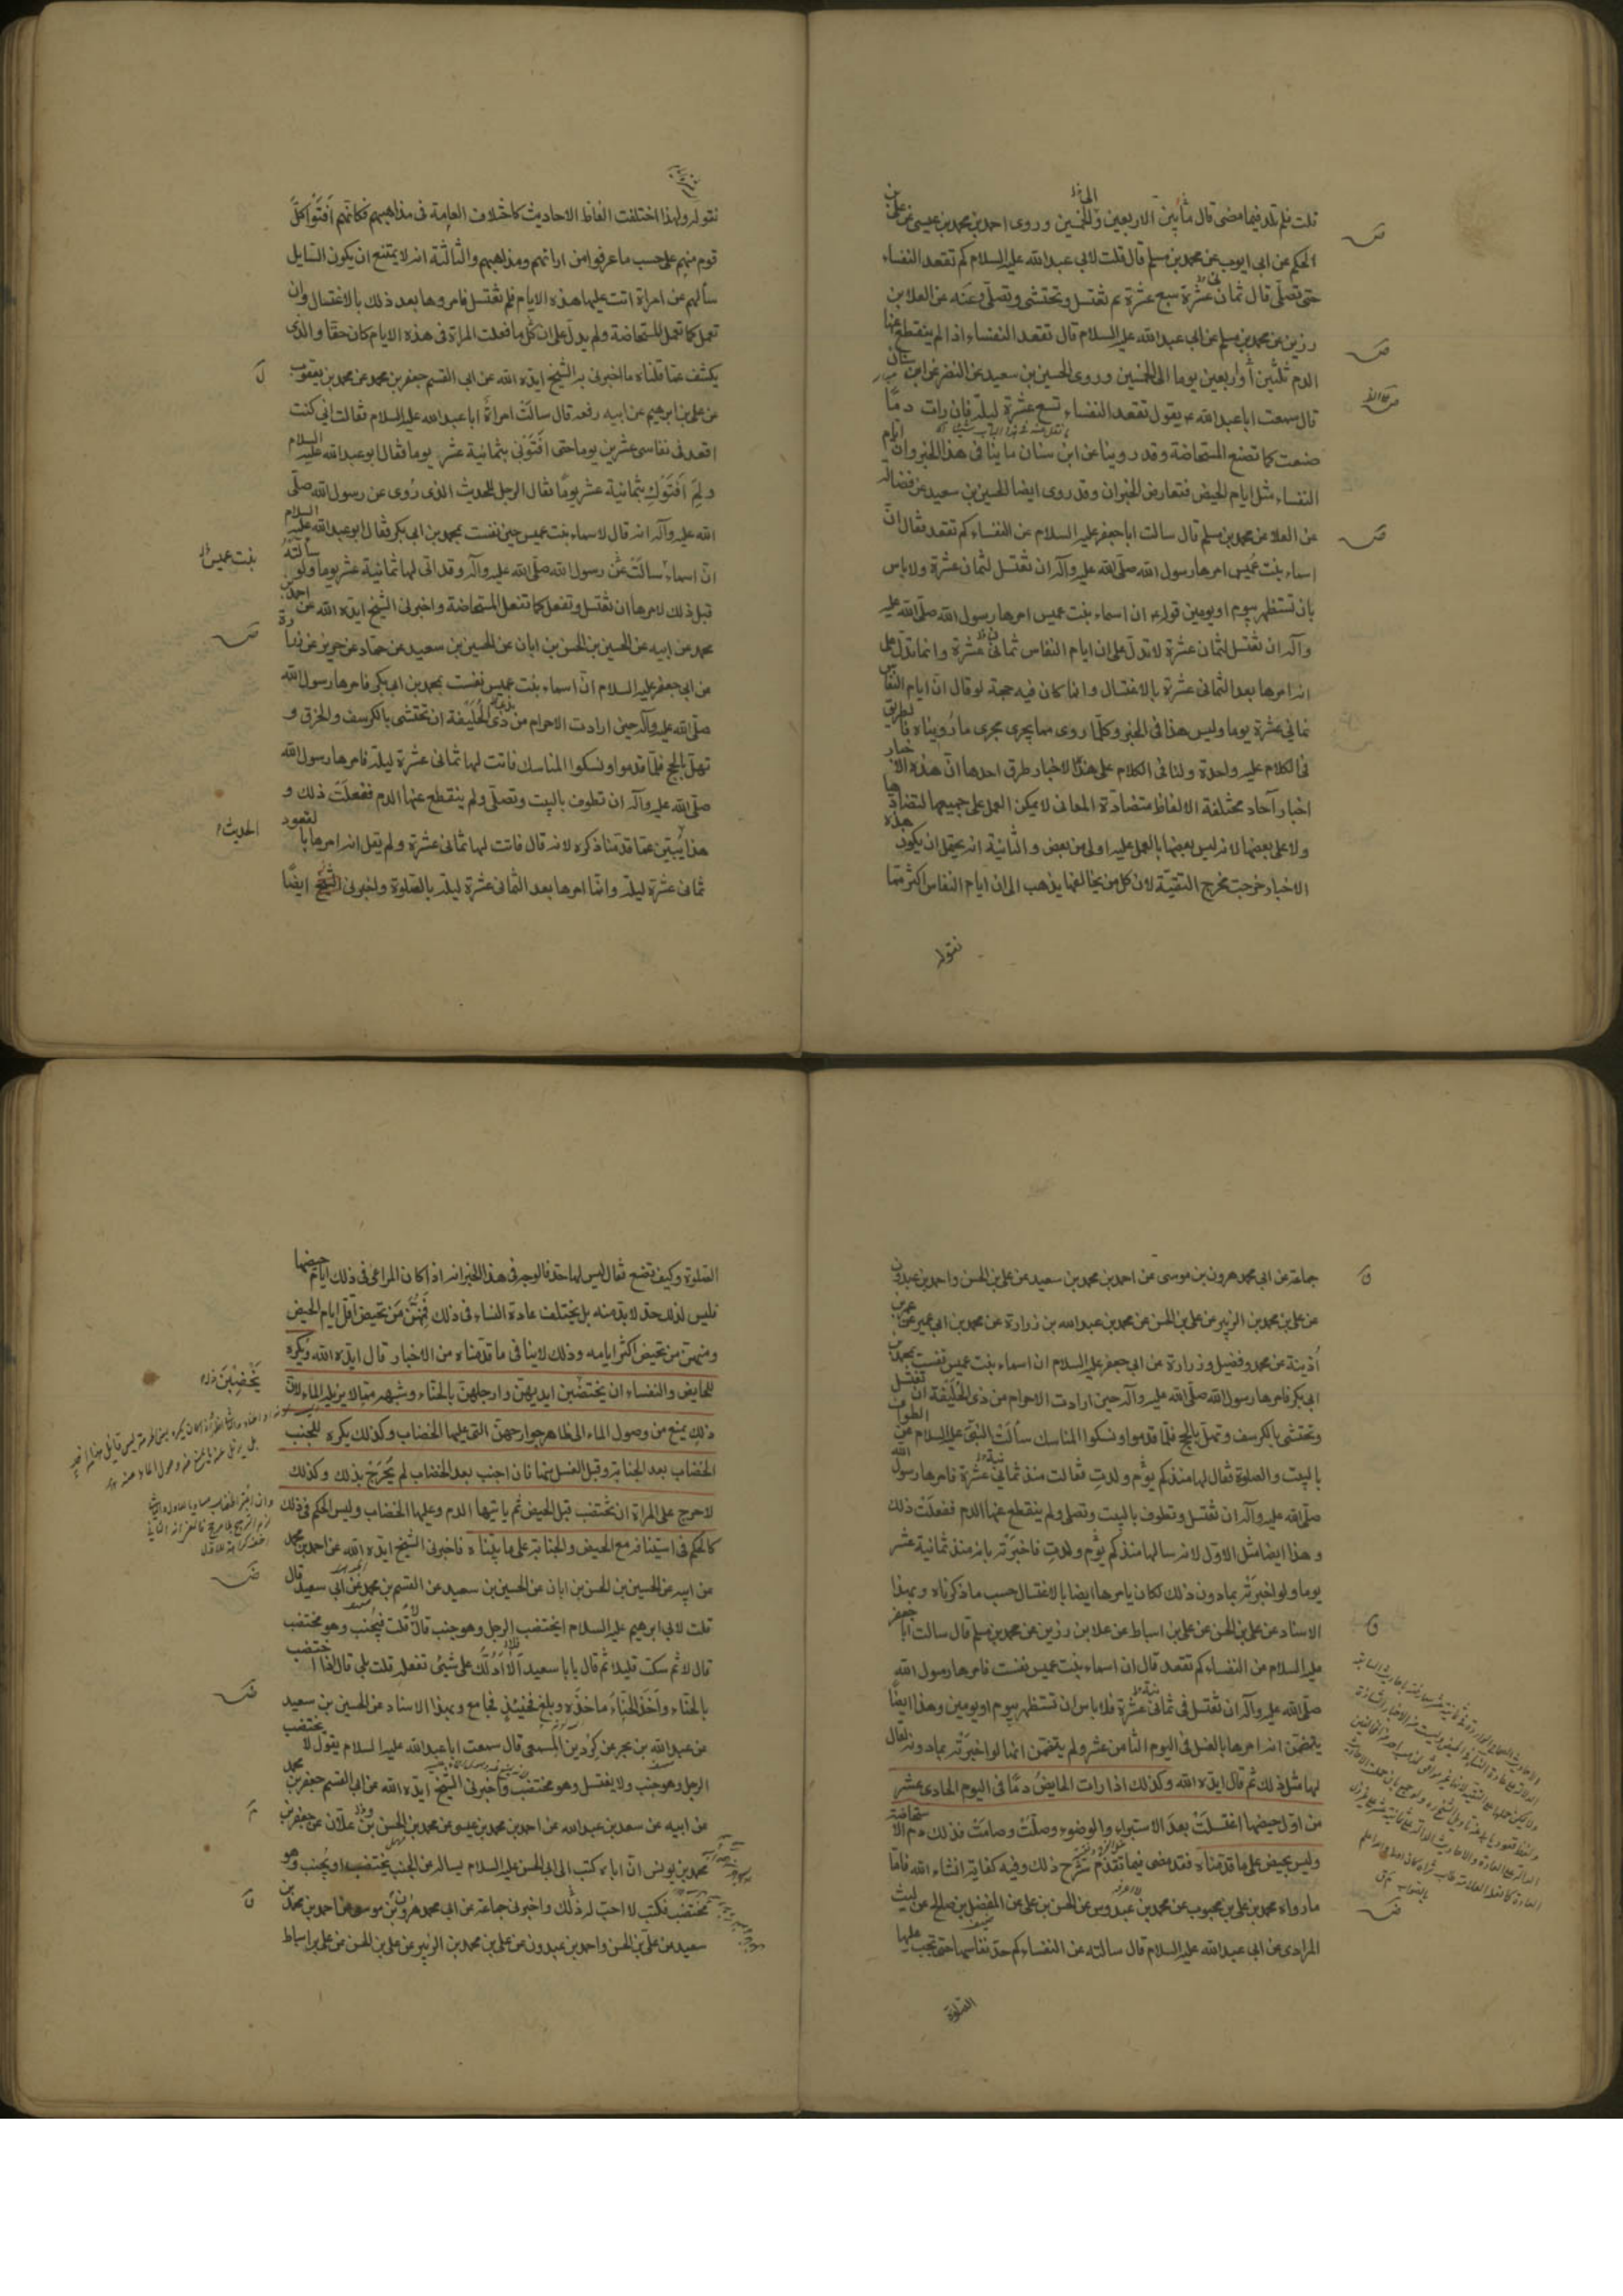 قلت فلم تلد فيما مضى قال ما بين الاربعين والخمسين وروى احمد بن محمد بن عيسى عن على بن
الحكم عن ابى ايوب عن محمد بن مسلم قال قلت لابى عبد الله عليه السلام كم تقعد النفساء
حتى تصلى قال ثمان عشرة سبع عشرة ثم تغتسل وتحتشى وتصلى وعنه عن العلا بن
رزين عن محمد بن مسلم عن ابى عبد الله عليه السلام قال تقعد النفساء اذا لم ينقطع عنها
الدم ثلثين اواربعين يوما الى الخمسين وروى الحسين بن سعيد عن النضر عن ابن سنان
قال سمعت ابا عبد الله ع يقول تقعد النفساء تسع عشرة ليلة فان رات دما
صنعت كما تصنع المستحاضة وقد روينا عن ابن سنان ما ينافى هذا الخبر وان ايام
النفساء مثل ايام الحيض فتعارض الخبران وقد روى ايضا الحسين بن سعيد عن فضالة
عن العلا عن محمد بن مسلم قال سالت ابا جعفر عليه السلام عن النفساء كم تقعد فقال انّ
اسماء بنت عُميس امرها رسول الله صلى الله عليه وآله ان تغتسل لثمان عشرة ولا باس
بان تستظهر بيوم او يومين قوله ع ان اسماء بنت عميس امرها رسول الله صلى الله عليه
وآله ان تغتسل لثمان عشرة لا تدلّ على ان ايام النفاس ثمانى عشرة وانما تدلّ على
انه امرها بعد الثمانى عشرة بالاغتسال وانما كان فيه حجة لو قال ان ايام النفاس
ثمانى عشرة يوما وليس هذا فى الخبر وكلّما روى مما يجرى مجرى ما رويناه فالطريق
فى الكلام عليه واحدة ولنا فى الكلام على هذه الاخبار طرق احدها انّ هذه الاخبار
اخبار آحاد مختلفة الالفاظ متضادّة المعانى لا يمكن العمل على جميعها لتضادها
ولا على بعضها لانه ليس بعضها بالعمل عليه اولى من بعض والثانية انه يحتمل ان يكون هذه
الاخبار خرجت مخرج التقيّة لان كل من يخالفنا يذهب الى ان ايام النفاس اكثر ممّا
نقوله
نقوله ولهذا اختلفت الفاظ الاحاديث كاختلاف العامة فى مذاهبهم فكانهم اَفتَوْا كلّ
قوم منهم على حسب ما عرفوا من ارائهم ومذاهبهم والثالثة انه لا يمتنع ان يكون السايل
سألهم عن امراة اتت عليها هذه الايام فلم تغتسل فامروها بعد ذلك بالاغتسال وان
تعمل كما تعمل المستحاضة ولم يدلّ على ان كل ما فعلت المراة فى هذه الايام كان حقا والذى
يكشف عما قلناه ما اخبرنى به الشيخ ايده الله عن ابى القسم جعفر بن محمد عن محمد بن يعقوب
عن على بن ابرهيم عن ابيه رفعه قال سالَت امراةٌ ابا عبد الله عليه السلام فقالت انى كنت
اقعد فى نفاسى عشرين يوما حتى اَفتَوْنى بثمانية عشر يوما فقال ابو عبد الله عليه السلام
ولِمَ اَفتَوْكِ بثمانية عشر يوما فقال الرجل للحديث الذى رُوى عن رسول الله صلى
الله عليه وآله انه قال لاسماء بنت عميس حين نفست بمحمد بن ابى بكر فقال ابو عبد الله عليه السلام
انّ اسماء سالَتْ عن رسول الله صلى الله عليه وآله وقد اتى لها ثمانية عشر يوما ولو سالته
بنت عميس
قبل ذلك لامرها ان تغتسل وتفعل كما تفعل المستحاضة واخبرنى الشيخ ايده الله عن احمد بن
محمد عن ابيه عن الحسين بن الحسن بن ابان عن الحسين بن سعيد عن حماد عن حريز عن زرارة
عن ابى جعفر عليه السلام انّ اسماء بنت عميس نفست بمحمد بن ابى بكر فامرها رسول الله
صلى الله عليه وآله حين ارادت الاحرام من ذى الحُلَيفة ان تحتشى بالكرسف والخرق و
تهلّ بالحج فلمّا قدموا ونسكوا المناسك فاتت لها ثمانى عشرة ليلة فامرها رسول الله
صلى الله عليه وآله ان تطوف بالبيت وتصلّى ولم ينقطع عنها الدم ففعلَتْ ذلك و
الحديث
هذا يبيّن عما قدمنا ذكره لانه قال فاتت لها ثمانى عشرة ولم يقل انه امرها بالقعود
ثمانى عشرة ليلة وانّما امرها بعد الثمانى عشرة ليلة بالصلوة واخبرنى الشيخ ايضًا
جماعة عن ابى محمد هرون بن موسى عن احمد بن محمد بن سعيد عن على بن الحسن واحمد بن عبدون
عن على بن محمد بن الزبير عن على بن الحسن عن محمد بن عبد الله بن زرارة عن محمد بن ابى عمير عن عمر بن
اُذينة عن محمد وفضيل وزرارة عن ابى جعفر عليه السلام ان اسماء بنت عميس نفست بمحمد بن
ابى بكر فامرها رسول الله صلى الله عليه وآله حين ارادت الاحرام من ذى الحُلَيفة ان تغتسل
وتحتشى بالكرسف وتهل بالحج فلمّا قدموا ونسكوا المناسك سألت النبىّ عليه السلام عن الطواف
بالبيت والصلوة فقال لها منذ كم يوم ولدتِ فقالت منذ ثمانى عشرة فامرها رسول الله
صلى الله عليه وآله ان تغتسل وتطوف بالبيت وتصلى ولم ينقطع عنها الدم ففعلَتْ ذلك
وهذا ايضا مثل الاوّل لانه سالها منذ كم يوم ولدتِ فاخبَرَتْه بانه منذ ثمانية عشر
يوما ولو اخبرَتْه بما دون ذلك لكان يامرها ايضا بالاغتسال حسب ما ذكرناه وبهذا
الاسناد عن على بن الحسن عن على بن اسباط عن علا بن رزين عن محمد بن مسلم قال سالت ابا جعفر
عليه السلام عن النفساء كم تقعد قال ان اسماء بنت عميس نفست فامرها رسول الله
صلى الله عليه وآله ان تغتسل فى ثمانى عشرة فلا باس ان تستظهر بيوم او يومين وهذا ايضًا
يتضمّن انه امرها بالغسل فى اليوم الثامن عشر ولم يتضمّن انها لو اخبرَتْه بما دونه لقال
لها مثل ذلك ثم قال ايده الله وكذلك اذا رات الحايضُ دمًا فى اليوم الحادى عشر
من اول حيضها اغتسلَتْ بعد الاستبراء والوضوء وصلّتْ وصامَتْ فذلك دم الاستحاضة
وليس بحيض على ما قدمناه فقد مضى فيما تقدّم شرح ذلك وفيه كفاية انشاء الله فامّا
ما رواه محمد بن على بن محبوب عن محمد بن عبدوس عن الحسن بن على عن المفضل بن صالح عن ليث
المرادى عن ابى عبد الله عليه السلام قال سالته عن النفساء كم حدّ نفاسها حتى تجب عليها
الصلوة
الصلوة وكيف تصنع فقال ليس لها حدّ فالوجه فى هذا الخبر انه اذا كان المراعى فى ذلك ايام حيضها
فليس لذلك حد لا بد منه بل يختلف عادة النساء فى ذلك فمنهُنّ مَن تحيض اقلّ ايام الحيض
ومنهن من تحيض اكثر ايامه وذلك لا ينافى ما قدمناه من الاخبار قال ايده الله ويُكره
يَخْضِبْنَ
للحايض والنفساء ان يختضبن ايديهنّ وارجلهنّ بالحناء وشبهه مما لا يزيله الماء لانّ
ذلك يمنع من وصول الماء الى ظاهر جوارحهنّ التى عليها الخضاب وكذلك يكره للجنب
الخضاب بعد الجنابة وقبل الغسل منها فان اجنب بعد الخضاب لم يَحْرَجْ بذلك وكذلك
لا حرج على المراة ان تختضب قبل الحيض ثم ياتيها الدم وعليها الخضاب وليس الحكم فى ذلك
كالحكم فى استينافه مع الحيض والجنابة على ما بيّناه فاخبرنى الشيخ ايده الله عن احمد بن محمد
عن ابيه عن الحسين بن الحسن بن ابان عن الحسين بن سعيد عن القسم بن محمد عن ابى سعيد قال
قلت لابى ابرهيم عليه السلام ايختضب الرجل وهو جنب قال لا قلت فيُجنب وهو مختضب
قال لا ثم سكت قليلا ثم قال يا با سعيد اَلا اَدُلُّك على شيئ تفعله قلت بلى قال اذا اختضب
بالحناء واَخَذَ الحِنّاءُ ماخذَه وبلغ فحينئذٍ فجامع وبهذا الاسناد عن الحسين بن سعيد
عن عبد الله بن بحر عن كِرْدين المِسمعى قال سمعت ابا عبد الله عليه السلام يقول لا يختضب
الرجل وهو جنب ولا يغتسل وهو مختضب واخبرنى الشيخ ايده الله عن ابى القسم جعفر بن محمد
عن ابيه عن سعد بن عبد الله عن احمد بن محمد بن عيسى عن محمد بن الحسن بن علّان عن جعفر بن
محمد بن يونس انّ اباه كتب الى ابى الحسن عليه السلام يساله عن الجنب يختضب او يُجنب وهو
مختضب فكتب لا احبّ له ذلك واخبرنى جماعة عن ابى محمد هرون بن موسى عن احمد بن محمد بن
سعيد عن على بن الحسن واحمد بن عبدون عن على بن محمد بن الزبير عن على بن الحسن عن على بن اسباط